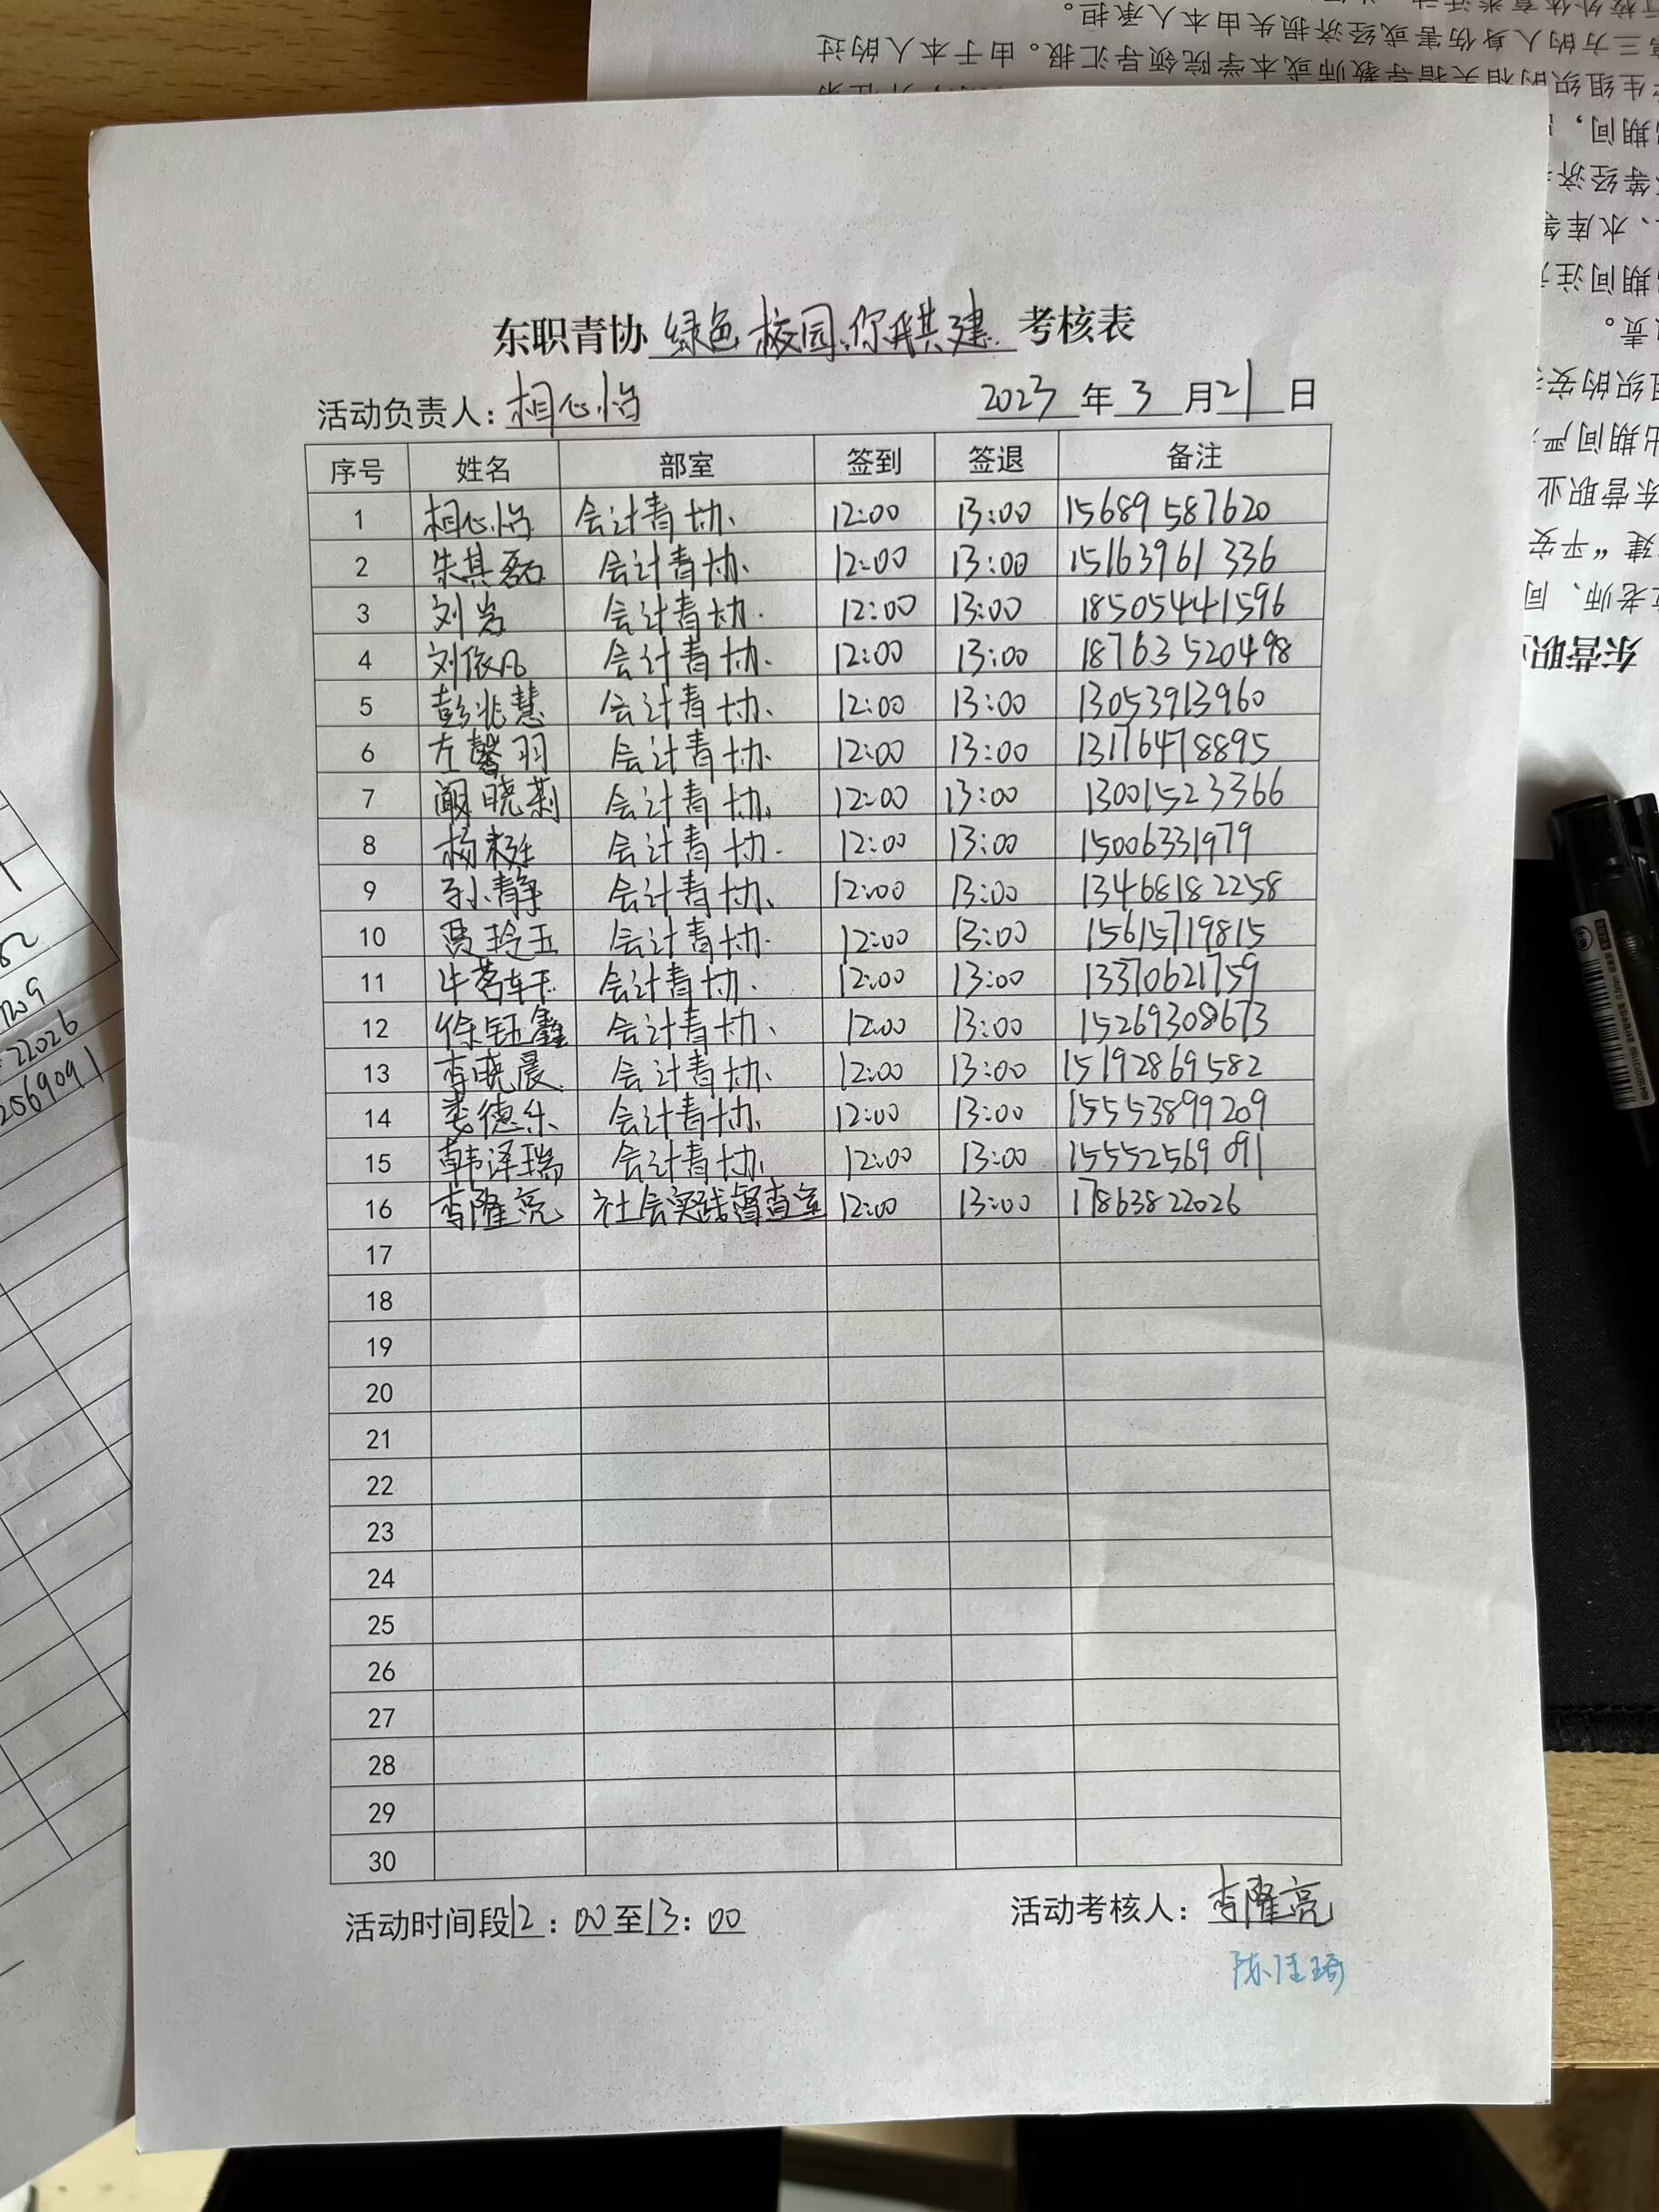 东职青协 绿色校园,你我共建 考核表
活动负责人: 相心怡 2023 年 3 月 21 日
序号 姓名 部室 签到 签退 备注
1 相心怡 会计青协 12:00 13:00 15689587620
2 朱其磊 会计青协 12:00 13:00 15163961336
3 刘岩 会计青协 12:00 13:00 18505441596
4 刘依凡 会计青协 12:00 13:00 18763520498
5 彭兆慧 会计青协 12:00 13:00 13053913960
6 左馨羽 会计青协 12:00 13:00 13176478895
7 阚晓莉 会计青协 12:00 13:00 13001523366
8 杨 会计青协 12:00 13:00 15006331979
9 孙静 会计青协 12:00 13:00 13468182258
10 贾玲玉 会计青协 12:00 13:00 15615719815
11 牛茗 会计青协 12:00 13:00 13370621759
12 徐钰鑫 会计青协 12:00 13:00 15269308673
13 李晓晨 会计青协 12:00 13:00 15192869582
14 娄德乐 会计青协 12:00 13:00 15553899209
15 韩泽瑞 会计青协 12:00 13:00 15552569091
16 李隆亮 社会实践督查室 12:00 13:00 17863822026
17
18
19
20
21
22
23
24
25
26
27
28
29
30
活动时间段 12:00 至 13:00 活动考核人: 李隆亮
陈佳琦